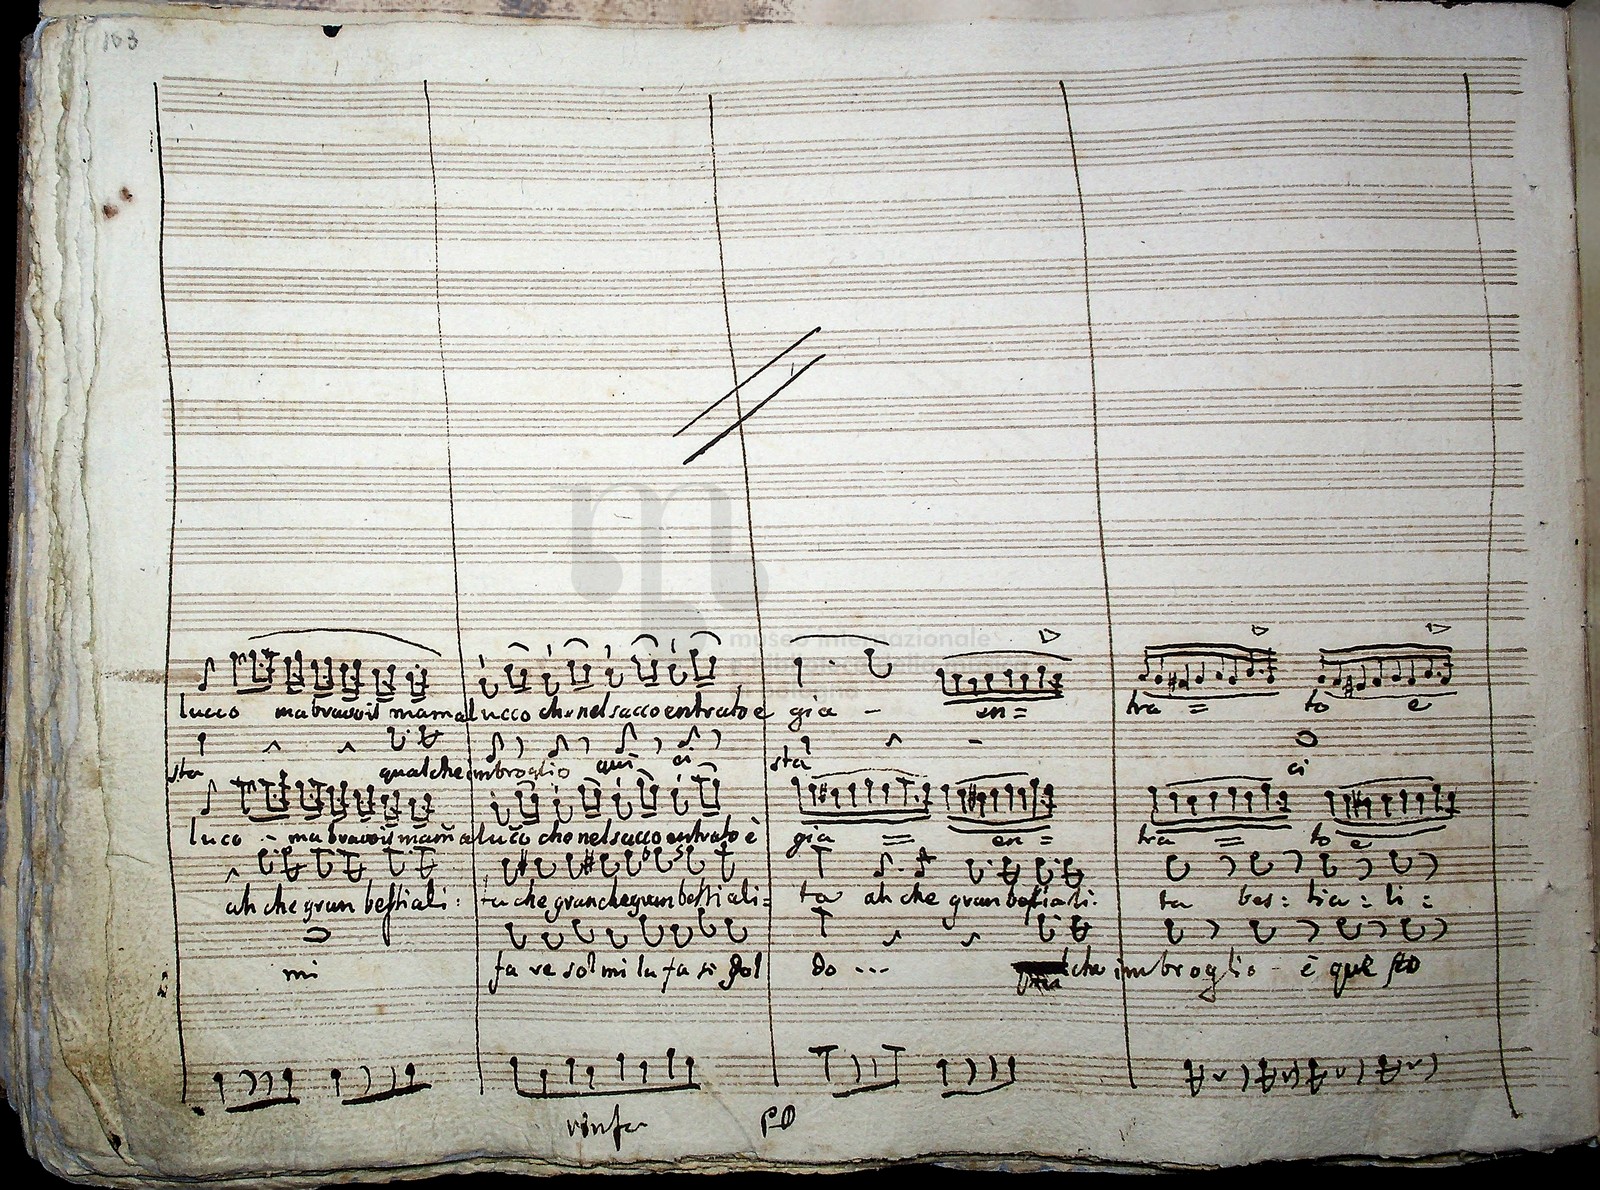 103
museo internazionale
lucco ma bravo vis mamalucco che nel sacco entrato e gia - en = tra = to e
sta qualche imbroglio qui ci sta ci
luco - ma bravo vis mamaluco che nel sacco entrato è gia = en = tra = to e
ah che gran bestiali: ta che gran che gran bestiali = ta ah che gran bestiali: ta bes: tia: li:
mi fa re sol mi la fa si sol do --- che imbroglio - è que sto
rinf